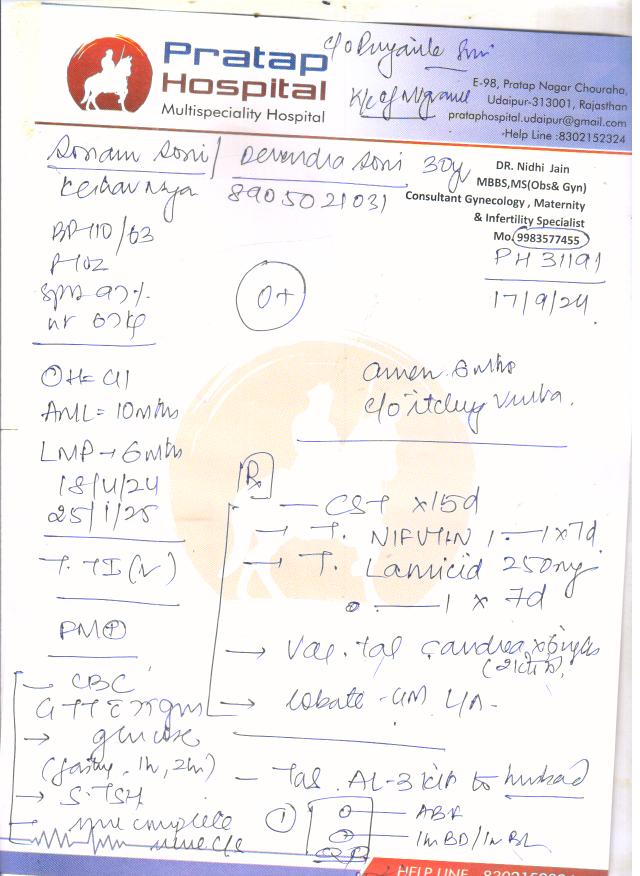 Pratap
Hospital
Multispeciality Hospital
c/o
K/c/o Migraine
E-98, Pratap Nagar Chouraha,
Udaipur-313001, Rajasthan
prataphospital.udaipur@gmail.com
Help Line :8302152324
Sonam Soni / Devendra Soni 30y
8905021031
DR. Nidhi Jain
MBBS,MS(Obs& Gyn)
Consultant Gynecology , Maternity
& Infertility Specialist
Mo. 9983577455
PH 31191
17/9/24
BP-110/63
P-102
SpO2 97%
wt 67kg
O+
OH= G1
AML = 10mths
LMP → 6mths
18/4/24
25/1/25
Amen. 6mths
c/o itching vulva.
Rx
— CST x15d
→ T. NIFUTIN 1 — 1 x 7d
→ T. Lamicid 250mg
— 1 x 7d
→ Vag. tab candrea x 6 nights
→ Cobate-GM L/A
T. TI (✓)
PM+
— CBC
GTT 75gms
→ glucose
(fasting, 1h, 2hr)
→ S. TSH
— urine complete
urine c/s
— Tab. AL-3 kit to husband
1
ABF
1hr BD/1hr BL
HELP LINE